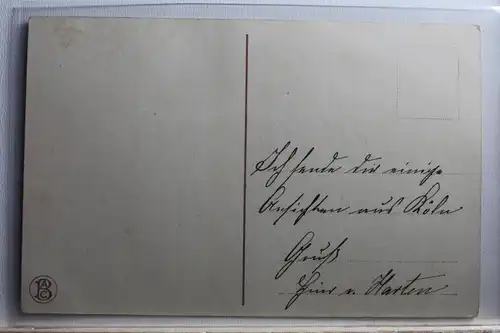 Ich sende dir einige
Ansichten aus Köln
Gruß
v. Harten